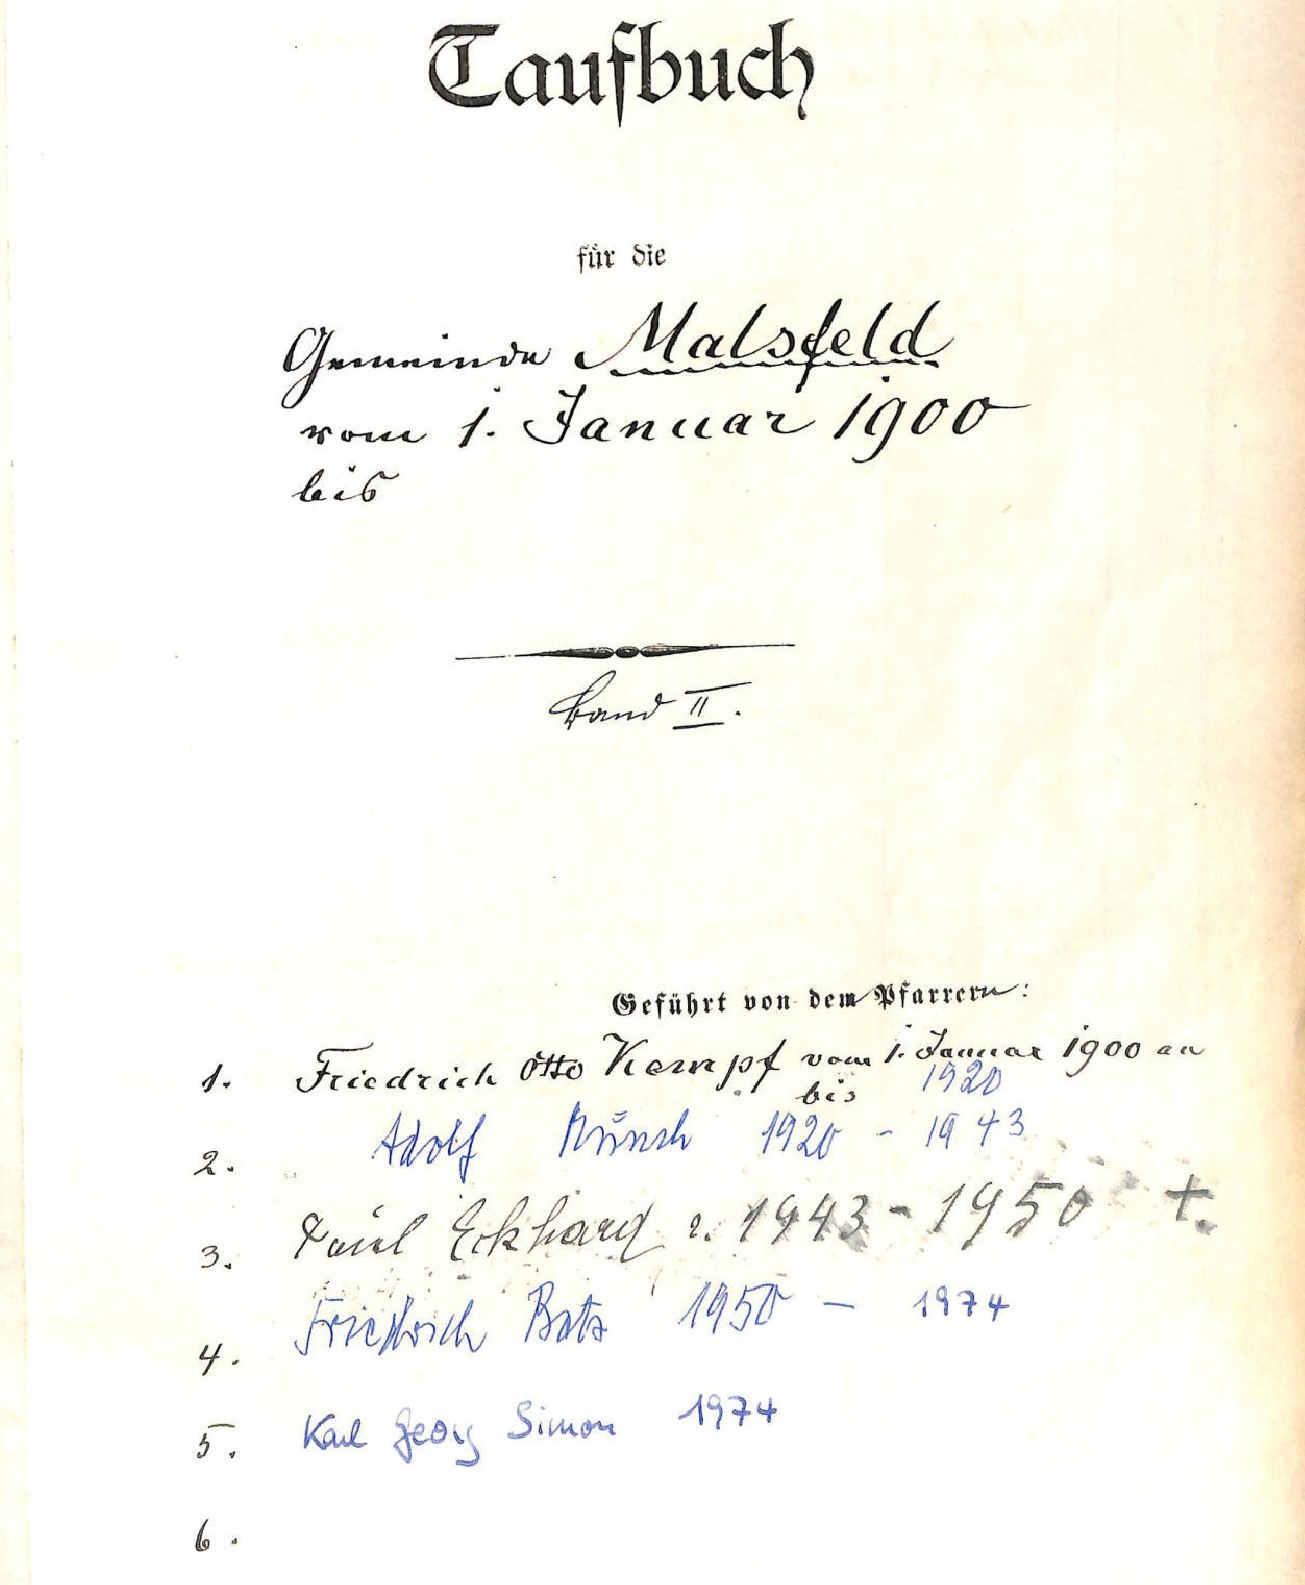 Taufbuch
für die
Gemeinde Malsfeld
vom 1. Januar 1900
bis
Band II.
Geführt von dem Pfarrern:
1. Friedrich Otto Kempf vom 1. Januar 1900 an
bis 1920
2. Adolf Münch 1920 - 1943
3. Paul Eckhard 1943 - 1950 +
4. Friedrich Batz 1950 - 1974
5. Karl Georg Simon 1974
6.